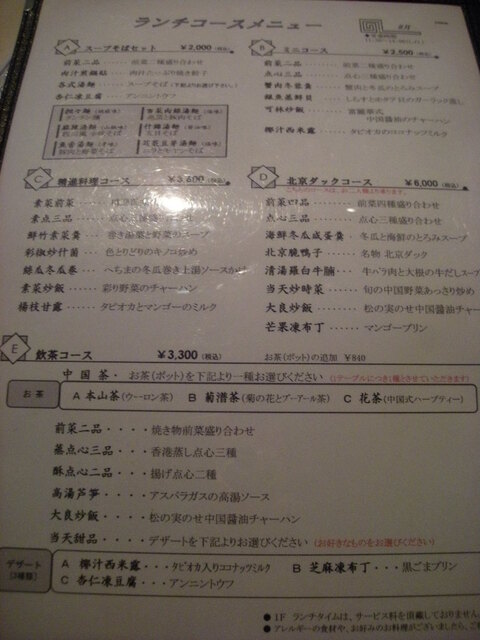 ランチコースメニュー
8月
A スープそばセット ¥2,000 (税込)
前菜二品・・・・・前菜二種盛り合わせ
肉汁煎鍋貼・・・・肉汁たっぷり焼き餃子
各式湯麺・・・・・スープそば
杏仁凍豆腐・・・・アンニントウフ
タンタン麺
B ミニコース ¥2,500 (税込)
前菜二品・・・・・前菜二種盛り合わせ
点心三品・・・・・点心三種盛り合わせ
蟹肉冬蓉羹・・・・蟹肉と冬瓜のとろみスープ
中国醤油のチャーハン
椰汁西米露・・・・タピオカのココナッツミルク
C 精進料理コース ¥3,600 (税込)
素菜前菜
素点三品・・・・点心三種盛り合わせ
鮮竹素菜羹・・・・巻き湯葉と野菜のスープ
彩椒炒什菌・・・・色とりどりのキノコ炒め
絲瓜冬瓜巻・・・・へちまの冬瓜巻き上湯ソースかけ
素菜炒飯・・・・彩り野菜のチャーハン
楊枝甘露・・・・タピオカとマンゴーのミルク
D 北京ダックコース ¥6,000 (税込)
前菜四品・・・・前菜四種盛り合わせ
点心三品・・・・点心三種盛り合わせ
海鮮冬瓜咸蛋羹・・冬瓜と海鮮のとろみスープ
北京脆鴨子・・・・名物 北京ダック
清湯羅白牛腩・・・牛バラ肉と大根の牛だしスープ
当天炒時菜・・・・旬の中国野菜あっさり炒め
大良炒飯・・・・・松の実のせ中国醤油チャーハン
芒果凍布丁・・・・マンゴープリン
E 飲茶コース ¥3,300 (税込) お茶(ポット)の追加 ¥840
中国茶・・お茶(ポット)を下記より一種お選びください (1テーブルにつき1種とさせていただきます)
お茶 A 本山茶(ウーロン茶) B 菊潽茶(菊の花とプーアール茶) C 花茶(中国式ハーブティー)
前菜二品・・・・焼き物前菜盛り合わせ
蒸点心三品・・・香港蒸し点心三種
酥点心二品・・・揚げ点心二種
高湯芦筍・・・・アスパラガスの高湯ソース
大良炒飯・・・・松の実のせ中国醤油チャーハン
当天甜品・・・・デザートを下記よりお選びください (お好きなものをお選びください)
デザート(3種類) A 椰汁西米露・・・タピオカ入りココナッツミルク B 芝麻凍布丁・・・黒ごまプリン
C 杏仁凍豆腐・・・アンニントウフ
●1F ランチタイムは、サービス料を頂戴しておりません。
●アレルギーの食材や、お好みのお料理がございましたら、ご